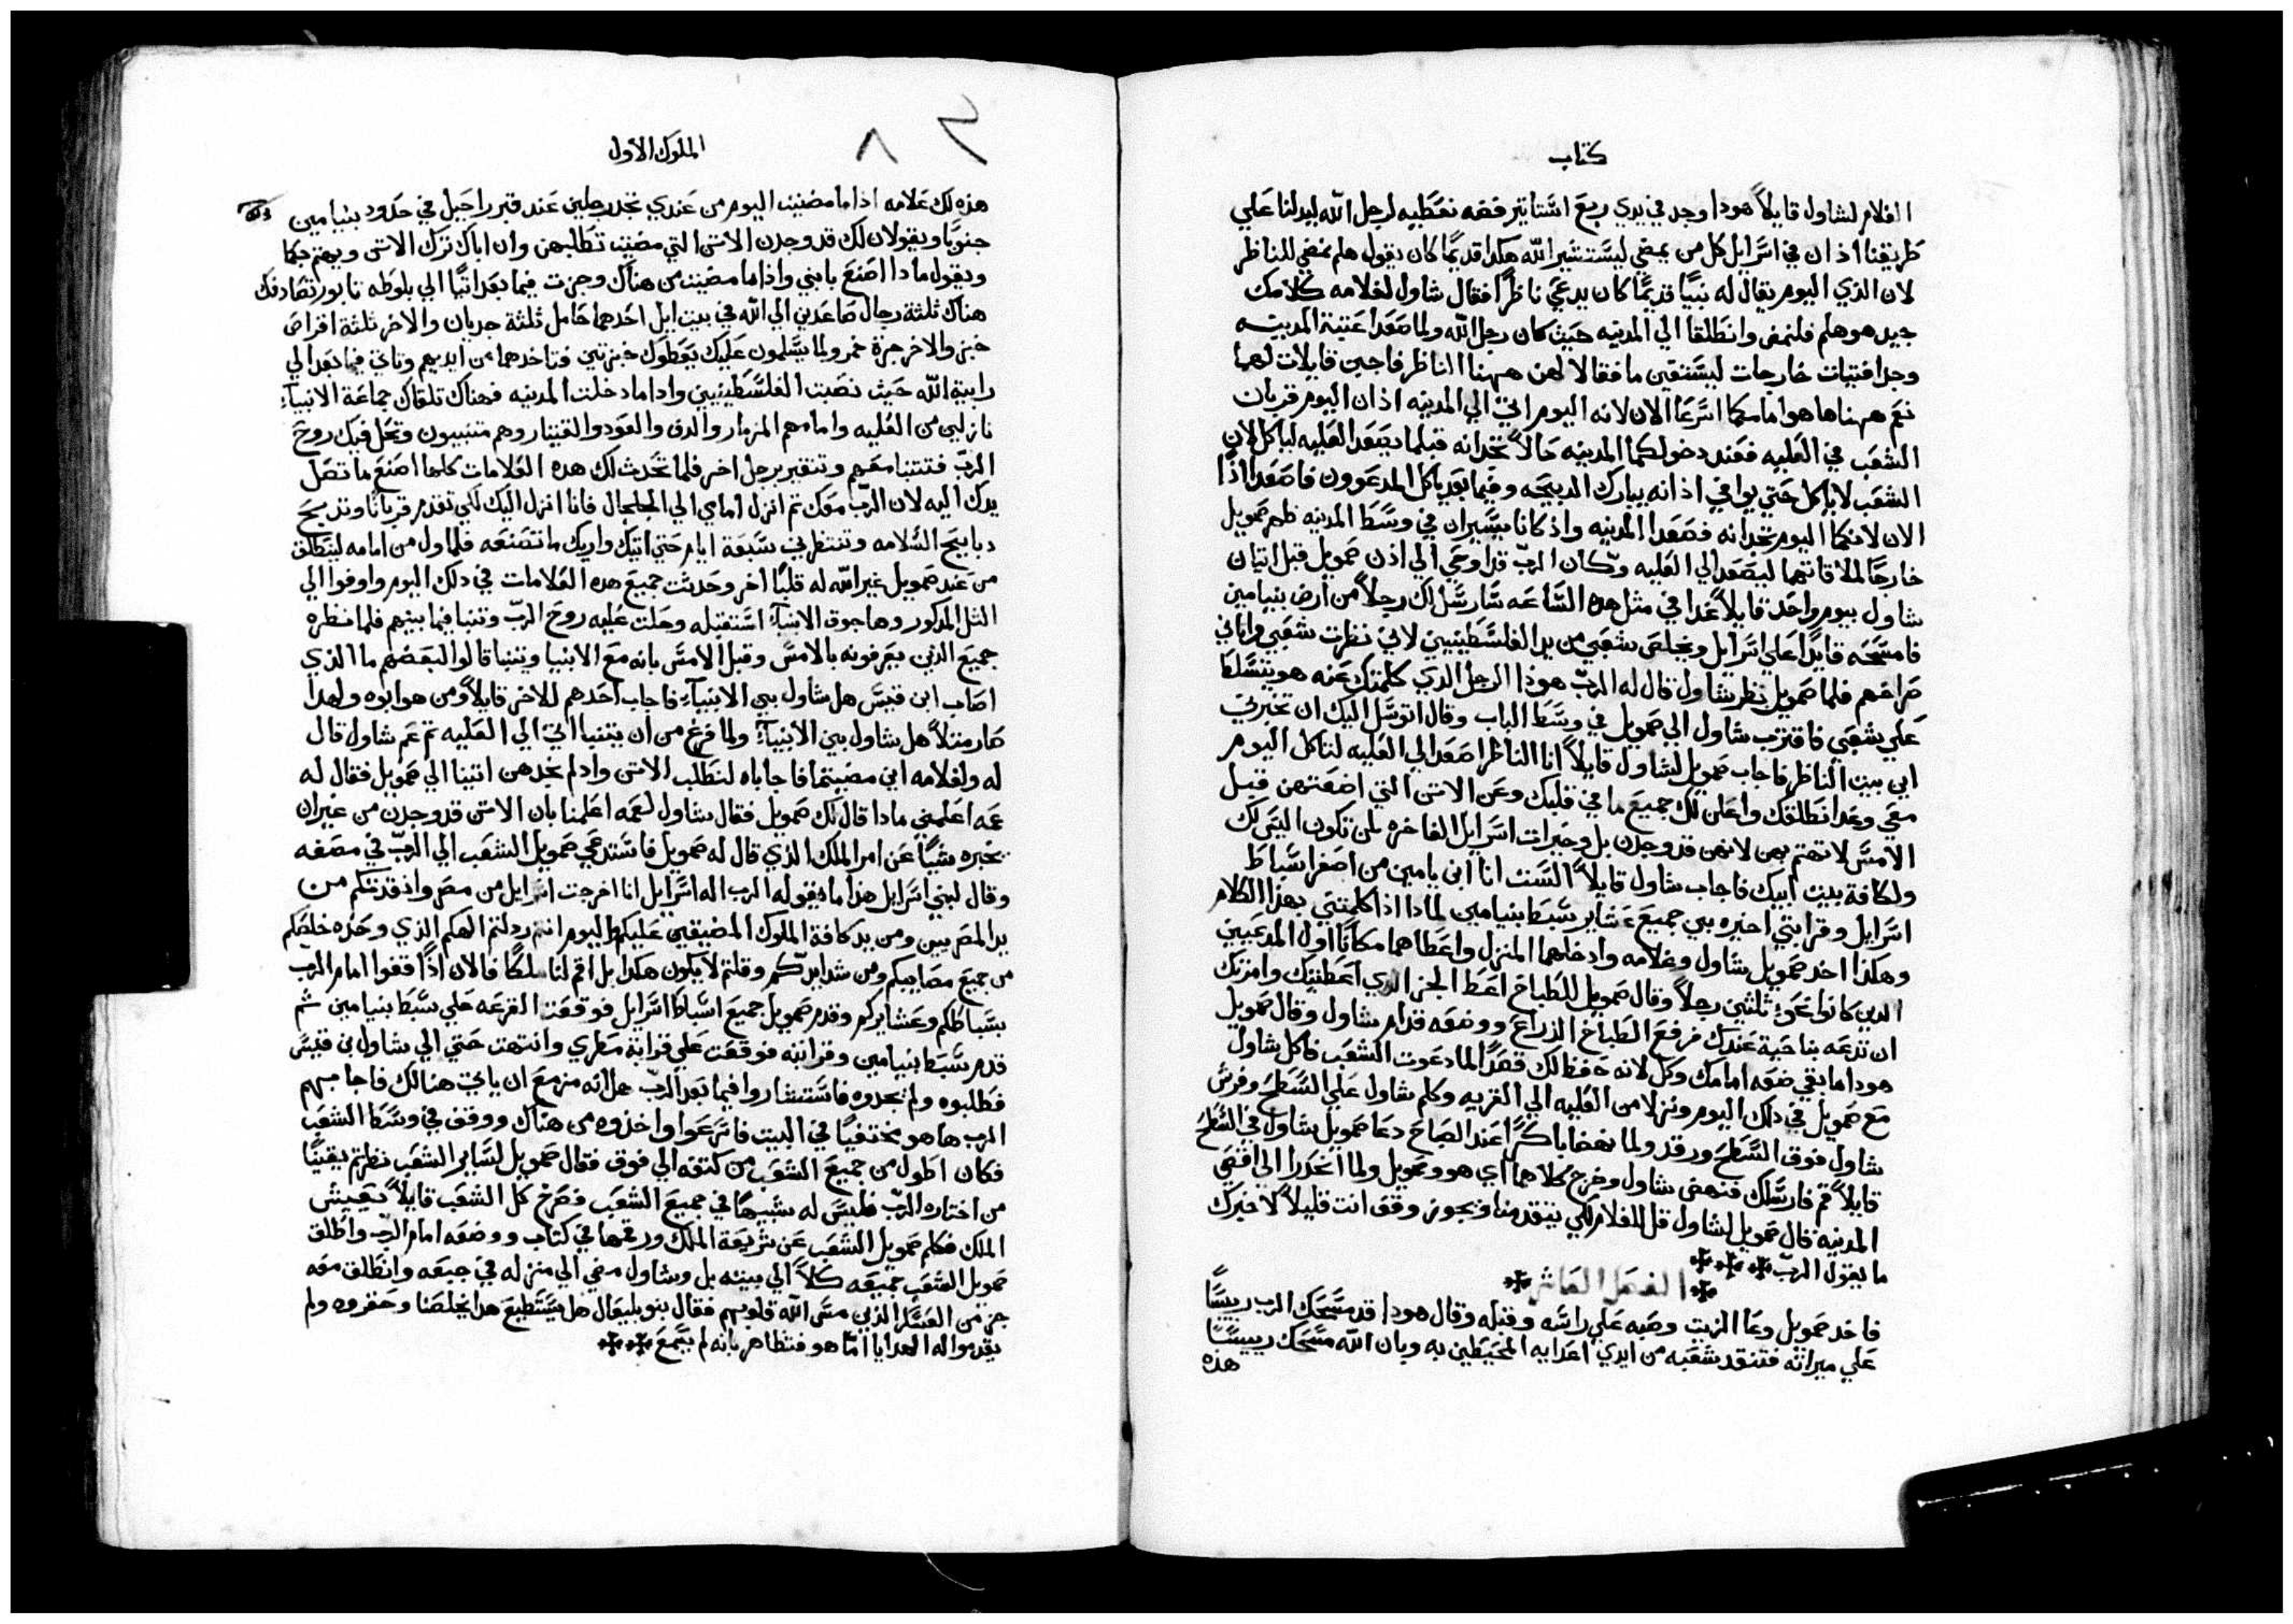 كتاب
الغلام لشاول قايلاً هوذا وجد في يدي ربع استاتير فضه نعطيه لرجل الله ليدلنا علي
طريقنا اذ ان في اسرايل كل من يمضي ليستشير الله هكدا قديمًا كان يقول هلم نمضي للناظر
لان الذي اليوم يقال له نبيًا قديمًا كان يدعي ناظرًا فقال شاول لغلامه كلامك
جيد هو هلم فلنمض وانطلقا الي المدينه حيث كان رجل الله ولما صعدا عتبة المدينه
وجدا فتيات خارجات ليستقين ما فقالا لهن ههنا الناظر فاجبن قايلات لهما
نعم ههنا ها هو امامكما اسرعا الان لانه اليوم اتي الي المدينه اذ ان اليوم قربان
الشعب في العليه فعند دخولكما المدينه حالاً تجدانه قبلما يصعد العليه لياكل لان
الشعب لا ياكل حتي يوافي اذ انه يبارك الدبيحه وفيما بعد ياكل المدعوون فاصعدا اذًا
الان لانكما اليوم تجدانه فصعدا المدينه واذ كانا يسيران في وسط المدينه ظهر صمويل
خارجًا لملاقاتهما ليصعد الي العليه وكان الرب قد اوحي الي اذن صمويل قبل اتيان
شاول بيوم واحد قايلاً غدا في مثل هده الساعه سارسل لك رجلاً من ارض بنيامين
فامسحه قايدًا علي اسرايل ويخلص شعبي من يد الفلسطينيين لاني نظرت شعبي فاتاني
صراخهم فلما صمويل نظر شاول قال له الرب هوذا الرجل الدي كلمتك عنه هو يتسلط
علي شعبي فاقترب شاول الي صمويل في وسط الباب وقال اتوسل اليك ان تخبرني
اين بيت الناظر فاجاب صمويل لشاول قايلاً انا الناظر اصعد الي العليه لتاكل اليوم
معي وغدا انطلقك واعلن لك جميع ما في قلبك وعن الاتن التي اضعتهن قبل
الامس لا تهتم بهن لانهن قد وجدن بل وخيرات اسرايل الفاخره لمن تكون اليس لك
ولكافة بيت ابيك فاجاب شاول قايلاً الست انا ابن يامين من اصغر اسباط
اسرايل وقرابتي اخيره بين جميع عشاير سبط بنيامين لمادا اذا كلمتني بهذا الكلام
وهكذا اخد صمويل شاول وغلامه وادخلهما المنزل واعطاهما مكانًا اول المدعيين
الدين كانوا نحو ثلثين رجلاً وقال صمويل للطباخ اعط الجز الدي اعطيتك وامرتك
ان تدعه بناحية عندك فرفع الطباخ الذراع ووضعه قدام شاول وقال صمويل
هودا ما بقي ضعه امامك وكل لانه حفظ لك قصدًا لما دعوت الشعب فاكل شاول
مع صمويل في دلك اليوم ونزلا من العليه الي القريه وكلم شاول علي السطح وفرش
شاول فوق السطح ورقد ولما نهضا باكرًا عند الصباح دعا صمويل شاول في السطح
قايلاً قم فارسلك فنهض شاول وخرج كلاهما اي هو وصمويل ولما انحدرا الي اقصي
المدينه قال صمويل لشاول قل للغلام لكي يتقدمنا ويجوز وقف انت قليلاً لاخبرك
ما يقول الرب
الفصل العاشر
فاخد صمويل وعا الزيت وصبه علي راسه وقبله وقال هودا قد مسحك الرب رييسًا
علي ميراثه فتنقد شعبه من ايدي اعدايه المحيطين به وبان الله مسحك رييسًا
هذه
الملوك الاول
٨
هذه لك علامه اذا ما مضيت اليوم من عندي تجد رجلين عند قبر راحيل في حدود بنيامين
جنوبًا ويقولان لك قد وجدن الاتن التي مضيت تطلبهن وان اباك ترك الاتن ويهتم بكما
ويقول مادا اصنع بابني واذا ما مضيت من هناك وجزت فيما بعد اتيًا الي بلوطه تابور تصادفك
هناك ثلثة رجال صاعدين الي الله في بيت ايل احدهما حامل ثلثة جديان والاخر ثلثة اقراص
خبز والاخر جرة خمر ولما يسلمون عليك يعطوك خبزتين فتاخدهما من ايديهم وتاتي فيما بعد الي
رابية الله حيث نصبت الفلسطينيين وادا ما دخلت المدينه فهناك تلقاك جماعة الانبياء
نازلين من العليه وامامهم المزمار والدف والعود والقيتار وهم متنبيون وتحل فيك روح
الرب فتتنبا معهم وتتغير برجل اخر فلما تحدث لك هده العلامات كلها اصنع ما تصل
يدك اليه لان الرب معك ثم انزل امامي الي الجلجال فانا انزل اليك لكي تقدم قربانًا وتدبح
دبايح السلامه وتنتظرني سبعة ايام حتي اتيك واريك ما تصنعه فلما ول من امامه لينطلق
من عند صمويل غير الله له قلبًا اخر وحدثت جميع هده العلامات في دلك اليوم واوفوا الي
التل المدكور وها جوق الانبياء استقبله وحلت عليه روح الرب وتنبا فيما بينهم فلما نظره
جميع الذين يعرفونه بالامس وقبل الامس بانه مع الانبيا ويتنبا قالوا لبعضهم ما الذي
اصاب ابن قيس هل شاول بين الانبياء فاجاب احدهم للاخر قايلاً ومن هو ابوه ولهدا
صار مثلاً هل شاول بين الانبياء ولما فرغ من ان يتنبا اتي الي العليه ثم عم شاول قال
له ولغلامه اين مضيتما فاجاباه لنطلب الاتن واد لم نجدهن اتينا الي صمويل فقال له
عمه اعلمني مادا قال لك صمويل فقال شاول لعمه اعلمنا بان الاتن قد وجدن من غير ان
يخبره شيًا عن امر الملك الذي قال له صمويل فاستدعي صمويل الشعب الي الرب في مصفه
وقال لبني اسرايل هذا ما يقوله الرب اله اسرايل انا اخرجت اسرايل من مصر وانقدتكم من
يد المصريين ومن يد كافة الملوك المضيقين عليكم واليوم انتم ردلتم الهكم الذي وحده خلصكم
من جميع مصايبكم ومن شدايدكم وقلتم لا يكون هكدا بل اقم لنا ملكًا فالان اذًا قفوا امام الرب
بسباطكم وعشايركم وقدم صمويل جميع اسباط اسرايل فوقعت القرعه علي سبط بنيامين ثم
قدم سبط بنيامين وقرابته فوقعت علي قرابة مطري وانتهت حتي الي شاول بن قيس
فطلبوه ولم يجدوه فاستشاروا فيما بعد الرب هل انه مزمع ان ياتي هنالك فاجابهم
الرب ها هو مختفيًا في البيت فاسرعوا واخذوه من هناك ووقف في وسط الشعب
فكان اطول من جميع الشعب من كتفه الي فوق فقال صمويل لساير الشعب نظرتم يقينًا
من اختاره الرب فليس له شبيهًا في جميع الشعب فصرخ كل الشعب قايلاً يعيش
الملك فكلم صمويل الشعب عن شريعة الملك ورقمها في كتاب ووضعه امام الرب واطلق
صمويل الشعب جميعه كلاً الي بيته بل وشاول مضي الي منزله في جبعه وانطلق معه
جز من العسكر الذين مس الله قلوبهم فقال بنو بليعال هل يستطيع هدا يخلصنا وحقروه ولم
يقدموا له الهدايا اما هو فتظاهر بانه لم يسمع